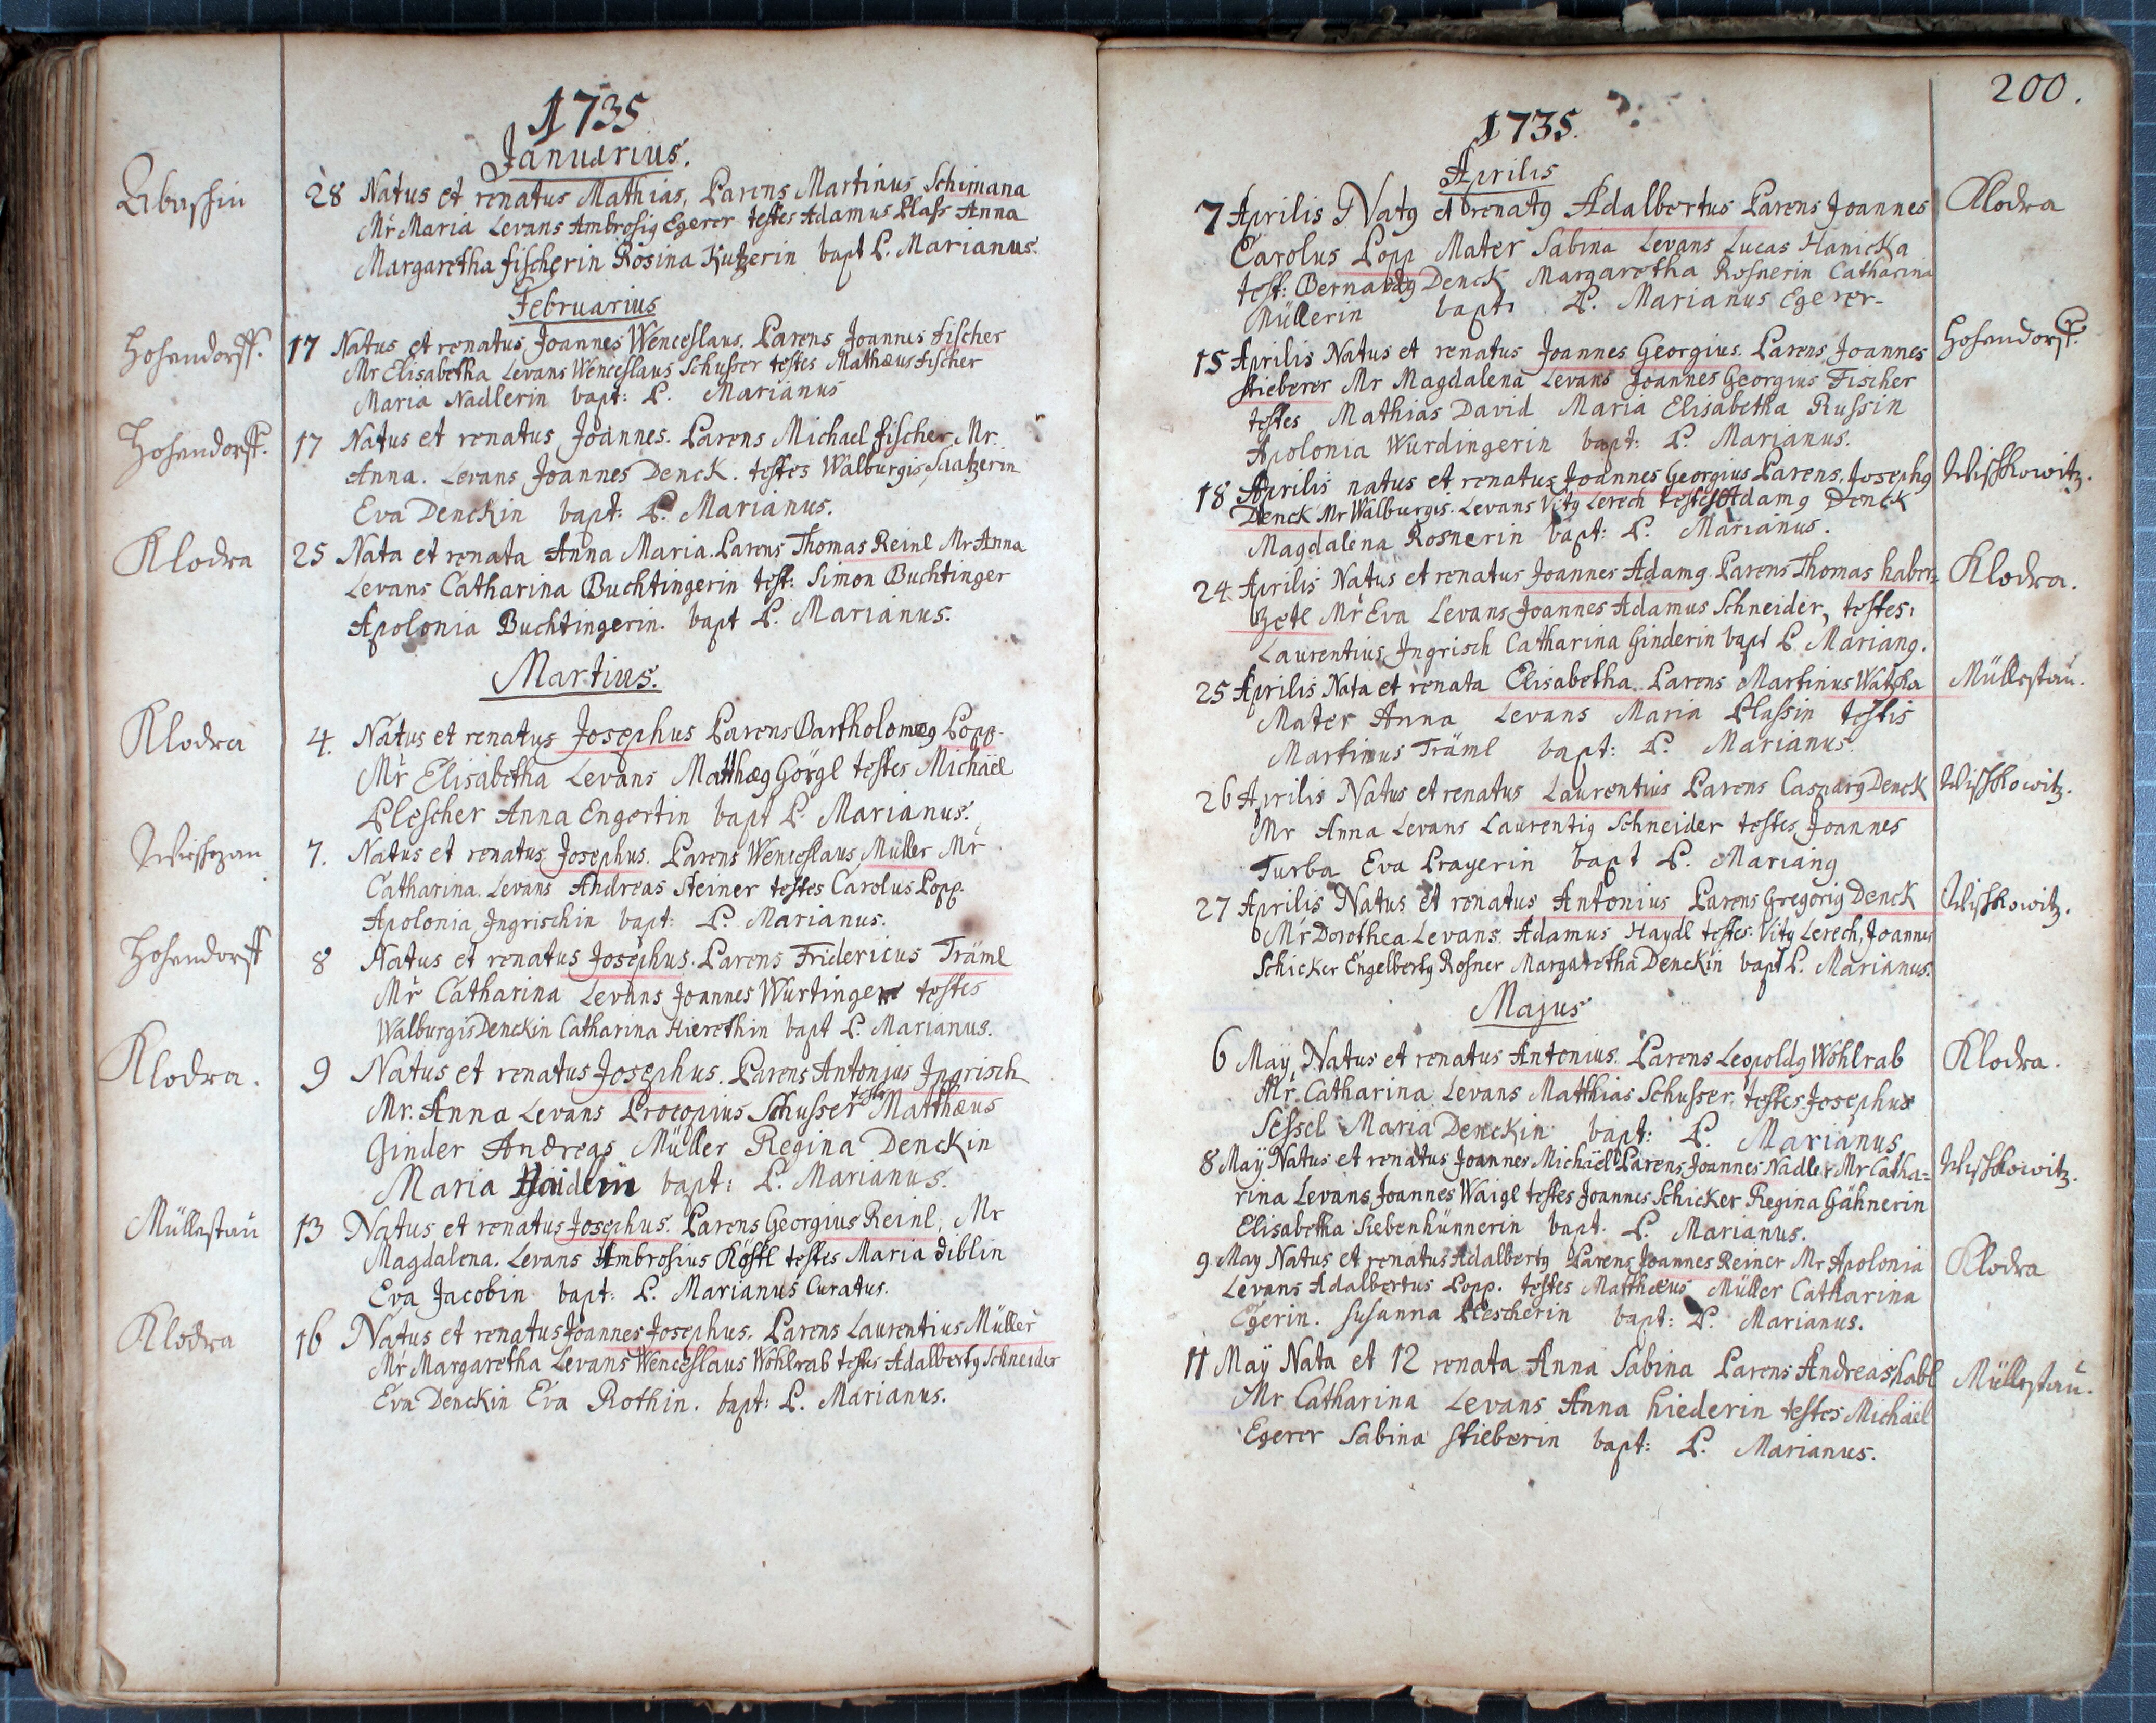 1735
Januarius.
28 Natus et renatus Mathias, Parens Martinus Schimana
Mr Maria Levans Ambrosig Egerer testes Adamus Plass Anna
Margaretha fischerin Rosina Kutzerin bapt P. Marianus.
Februarius
Hohendorff.
17 Natus et renatus Joannes Wenceslaus. Parens Joannes fischer
Mr Elisabetha Levans Wenceslaus Schusser testes Mathæus fischer
Maria Nadlerin bapt: P. Marianus
Hohendorff.
17 Natus et renatus Joannes. Parens Michael fischer Mr.
Anna. Levans Joannes Denck. testes Walburgis Saatzerin
Eva Denckin bapt: P. Marianus.
Klodra
25 Nata et renata Anna Maria. Parens Thomas Reinl Mr Anna
Levans Catharina Buchtingerin test: Simon Buchtinger
Apolonia Buchtingerin. bapt P. Marianus.
Martius.
Klodra
4. Natus et renatus Josephus Parens Bartholomeg Popp.
Mr Elisabetha Levans Matthæg Görgl testes Michäel
Plescher Anna Engertin bapt P. Marianus.
7. Natus et renatus Josephus. Parens Wenceslaus Müller Mr
Catharina. Levans Andreas Steiner testes Carolus Popp.
Apolonia Jngrischin bapt: P. Marianus.
Hohendorff
8 Natus et renatus Josephus. Parens Fridericus Träml
Mr Catharina Levans Joannes Wurtinger testes
Walburgis Denckin Catharina Hierethin bapt P. Marianus.
Klodra.
9 Natus et renatus Josephus. Parens Antonius Jngrisch
Mr. Anna Levans Procopius Schusser testes Matthæus
Ginder Andreas Müller Regina Denckin
Maria Haidlin bapt: P. Marianus.
Müllestau
13 Natus et renatus Josephus. Parens Georgius Reinl, Mr
Magdalena. Levans Ambrosius Köstl testes Maria diblin
Eva Jacobin bapt: P. Marianus Curatus.
Klodra
16 Natus et renatus Joannes Josephus. Parens Laurentius Müller
Mr Margaretha Levans Wenceslaus Wohlrab testes Adalbertg Schneider
Eva Denckin Eva Rothin. bapt: P. Marianus.
200.
1735.
Aprilis
7 Aprilis Natg et renatg Adalbertus Parens Joannes
Klodra
Carolus Popp Mater Sabina Levans Lucas Hanicka
test: Bernardg Denck Margaretha Rosnerin Catharina
Müllerin bapt. P. Marianus Egerer.
15 Aprilis Natus et renatus Joannes Georgius. Parens Joannes
Hohendorff.
Stieberer Mr Magdalena Levans Joannes Georgius Fischer
testes Mathias David Maria Elisabetha Russin
Apolonia Wurdingerin bapt: P. Marianus.
18 Aprilis natus et renatus Joannes Georgius Parens, Josephg
Wischkowitz.
Denck Mr Walburgis. Levans Vitg Lerech testes Adamg Denck
Magdalena Rosnerin bapt: P. Marianus.
24. Aprilis Natus et renatus Joannes Adamg. Parens Thomas haber=
Klodra.
Zetl Mr Eva Levans Joannes Adamus Schneider, testes:
Laurentius Jngrisch Catharina Ginderin bapt P. Mariang.
25 Aprilis Nata et renata Elisabetha. Parens Martinus Watzka
Müllestau.
Mater Anna Levans Maria Plassin testis
Martinus Träml bapt: P. Marianus.
26 Aprilis Natus et renatus Laurentius Parens Caspary Denck
Wischkowitz.
Mr Anna Levans Laurentig Schneider testes Joannes
Turba Eva Prayerin bapt P. Mariang
27 Aprilis Natus et renatus Antonius Parens Gregorig Denck
Wischkowitz.
Mr Dorothea. Levans. Adamus Haydl testes. Vitg Lerech, Joannes
Schicker Engelbertg Rosner Margaretha Denckin bapt P. Marianus.
Majus
6 May, Natus et renatus Antonius. Parens Leopoldg Wohlrab
Klodra.
Mr. Catharina Levans Matthias Schusser. testes Josephus
Sessel Maria Denckin bapt: P. Marianus
8 Maÿ Natus et renatus Joannes Michäel Parens Joannes Nadler Mr Catha=
Wischkowitz.
rina Levans Joannes Waigl testes Joannes Schicker Regina Gähnerin
Elisabetha Siebenhünnerin bapt. P. Marianus.
9 May Natus et renatus Adalbertg Parens Joannes Reiner Mr Apolonia
Klodra
Levans Adalbertus Popp. testes Matthæus Müller Catharina
Egerin. Susanna Plescherin bapt: P. Marianus.
11 Maÿ Nata et 12 renata Anna Sabina Parens Andreas habl
Müllestau.
Mr Catharina Levans Anna hiederin testes Michäel
Egerer Sabina Stieberin bapt: P. Marianus.